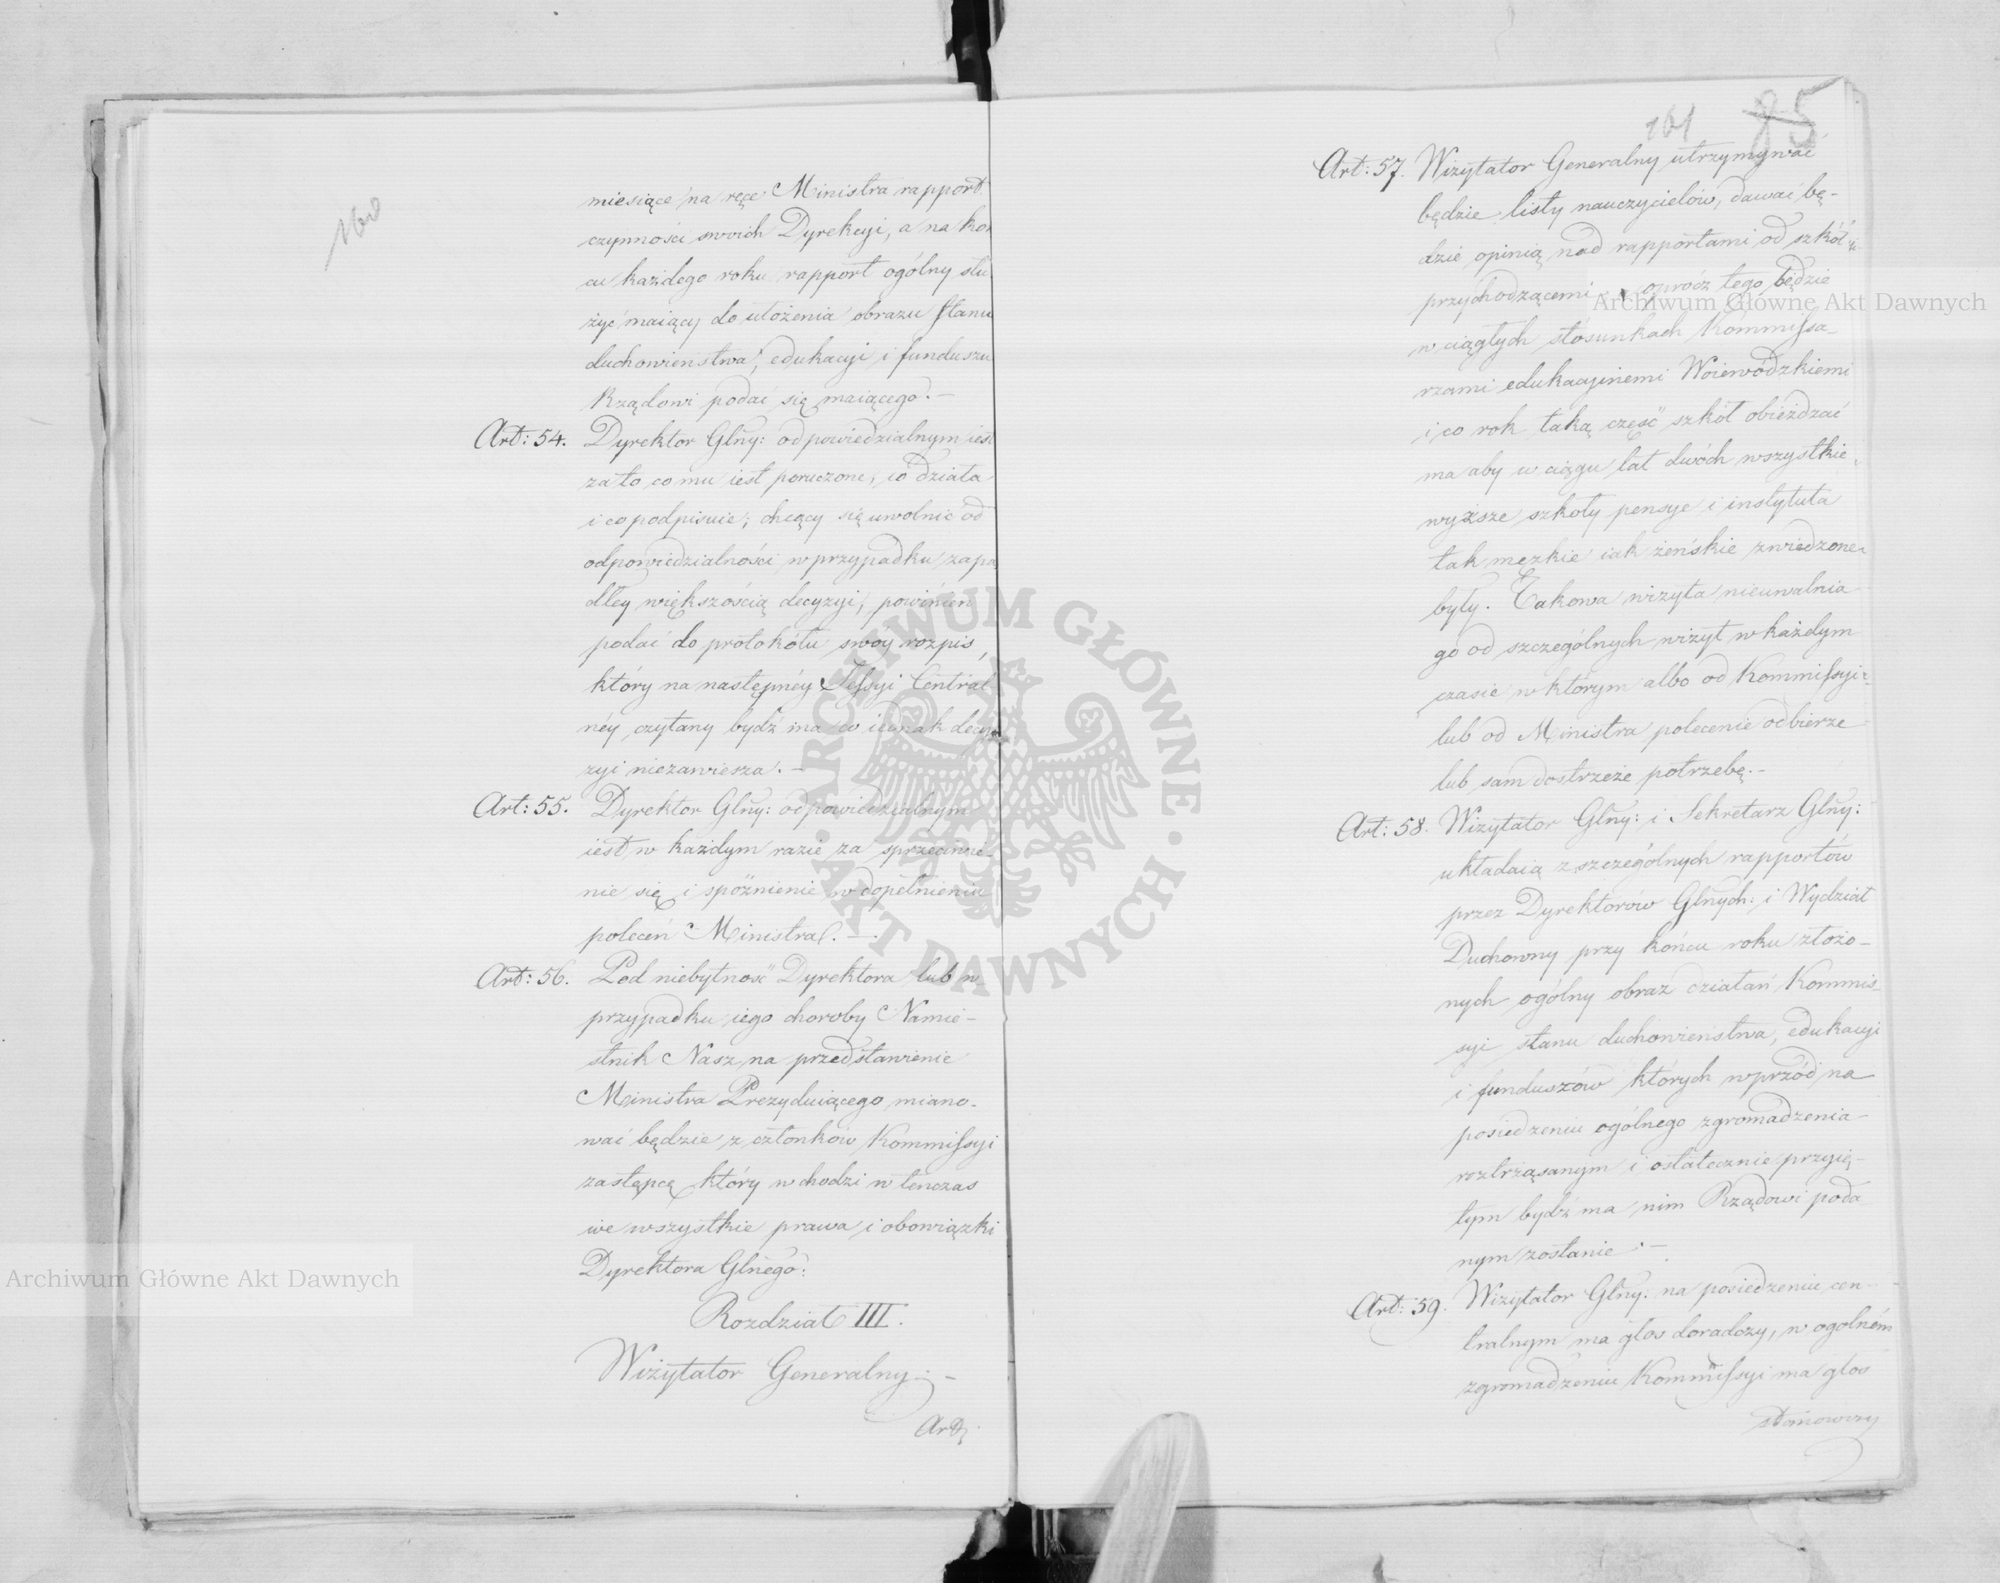 160
miesiące na ręce Ministra rapport
czynności swoich Dyrekcyi, a na koń
cu każdego roku rapport ogólny słu
żyć maiący do ułożenia obrazu stanu
duchowieństwa, edukacyi i funduszu
Rządowi podać się maiącego. —
Art: 54. Dyrektor Glny: odpowiedzialnym iest
za to co mu iest poruczone, co działa
i co podpisuie; chcący się uwolnić od
odpowiedzialności w przypadku zapa
dłey większością decyzyi, powinien
podać do protokołu swóy rozpis,
który na następnéy Sessyi Central
néy czytany bydź ma co iednak decy
zyi niezawiesza. —
Art: 55. Dyrektor Glny: odpowiedzialnym
iest w każdym razie za sprzeciwie-
nie się i spóźnienie w dopełnieniu
poleceń Ministra. —
Art: 56. Pod niebytność Dyrektora lub w
przypadku iego choroby Namie-
stnik Nasz na przedstawienie
Ministra Prezyduiącego miano-
wać będzie z członków Kommissyi
zastępcę który wchodzi w tenczas
we wszystkie prawa i obowiązki
Dyrektora Glnego:
Rozdział III.
Wizytator Generalny. —
Art:
161 85
Art: 57. Wizytator Generalny utrzymywać
będzie listy nauczycielów, dawać bę-
dzie opinią nad rapportami od szkół
przychodzącemi, oprócz tego będzie
w ciągłych stosunkach Kommissa-
rzami edukacyinemi Woiewódzkiemi
i co rok taką część szkół obieżdżać
ma aby w ciągu lat dwóch wszystkie
wyższe szkoły pensye i instytuta
tak męzkie iak żeńskie zwiedzone
były. Takowa wizyta nieuwalnia
go od szczególnych wizyt w każdym
czasie w którym albo od Kommissyi
lub od Ministra polecenie odbierze
lub sam dostrzeże potrzebę. —
Art: 58. Wizytator Glny: i Sekretarz Glny:
układaią z szczególnych rapportów
przez Dyrektorów Glnych: i Wydział
Duchowny przy końcu roku złożo-
nych ogólny obraz działań Kommis-
syi stanu duchowieństwa, edukacyi
i funduszów których wprzód na
posiedzeniu ogólnego zgromadzenia
roztrząsanym i ostatecznie przyię-
tym bydź ma nim Rządowi poda
nym zostanie. —
Art: 59. Wizytator Glny: na posiedzeniu cen-
tralnym ma głos doradczy, w ogolném
zgromadzeniu Kommissyi ma głos
stanowczy
Archiwum Główne Akt Dawnych
Archiwum Główne Akt Dawnych
ARCHIWUM GŁÓWNE · AKT DAWNYCH ·